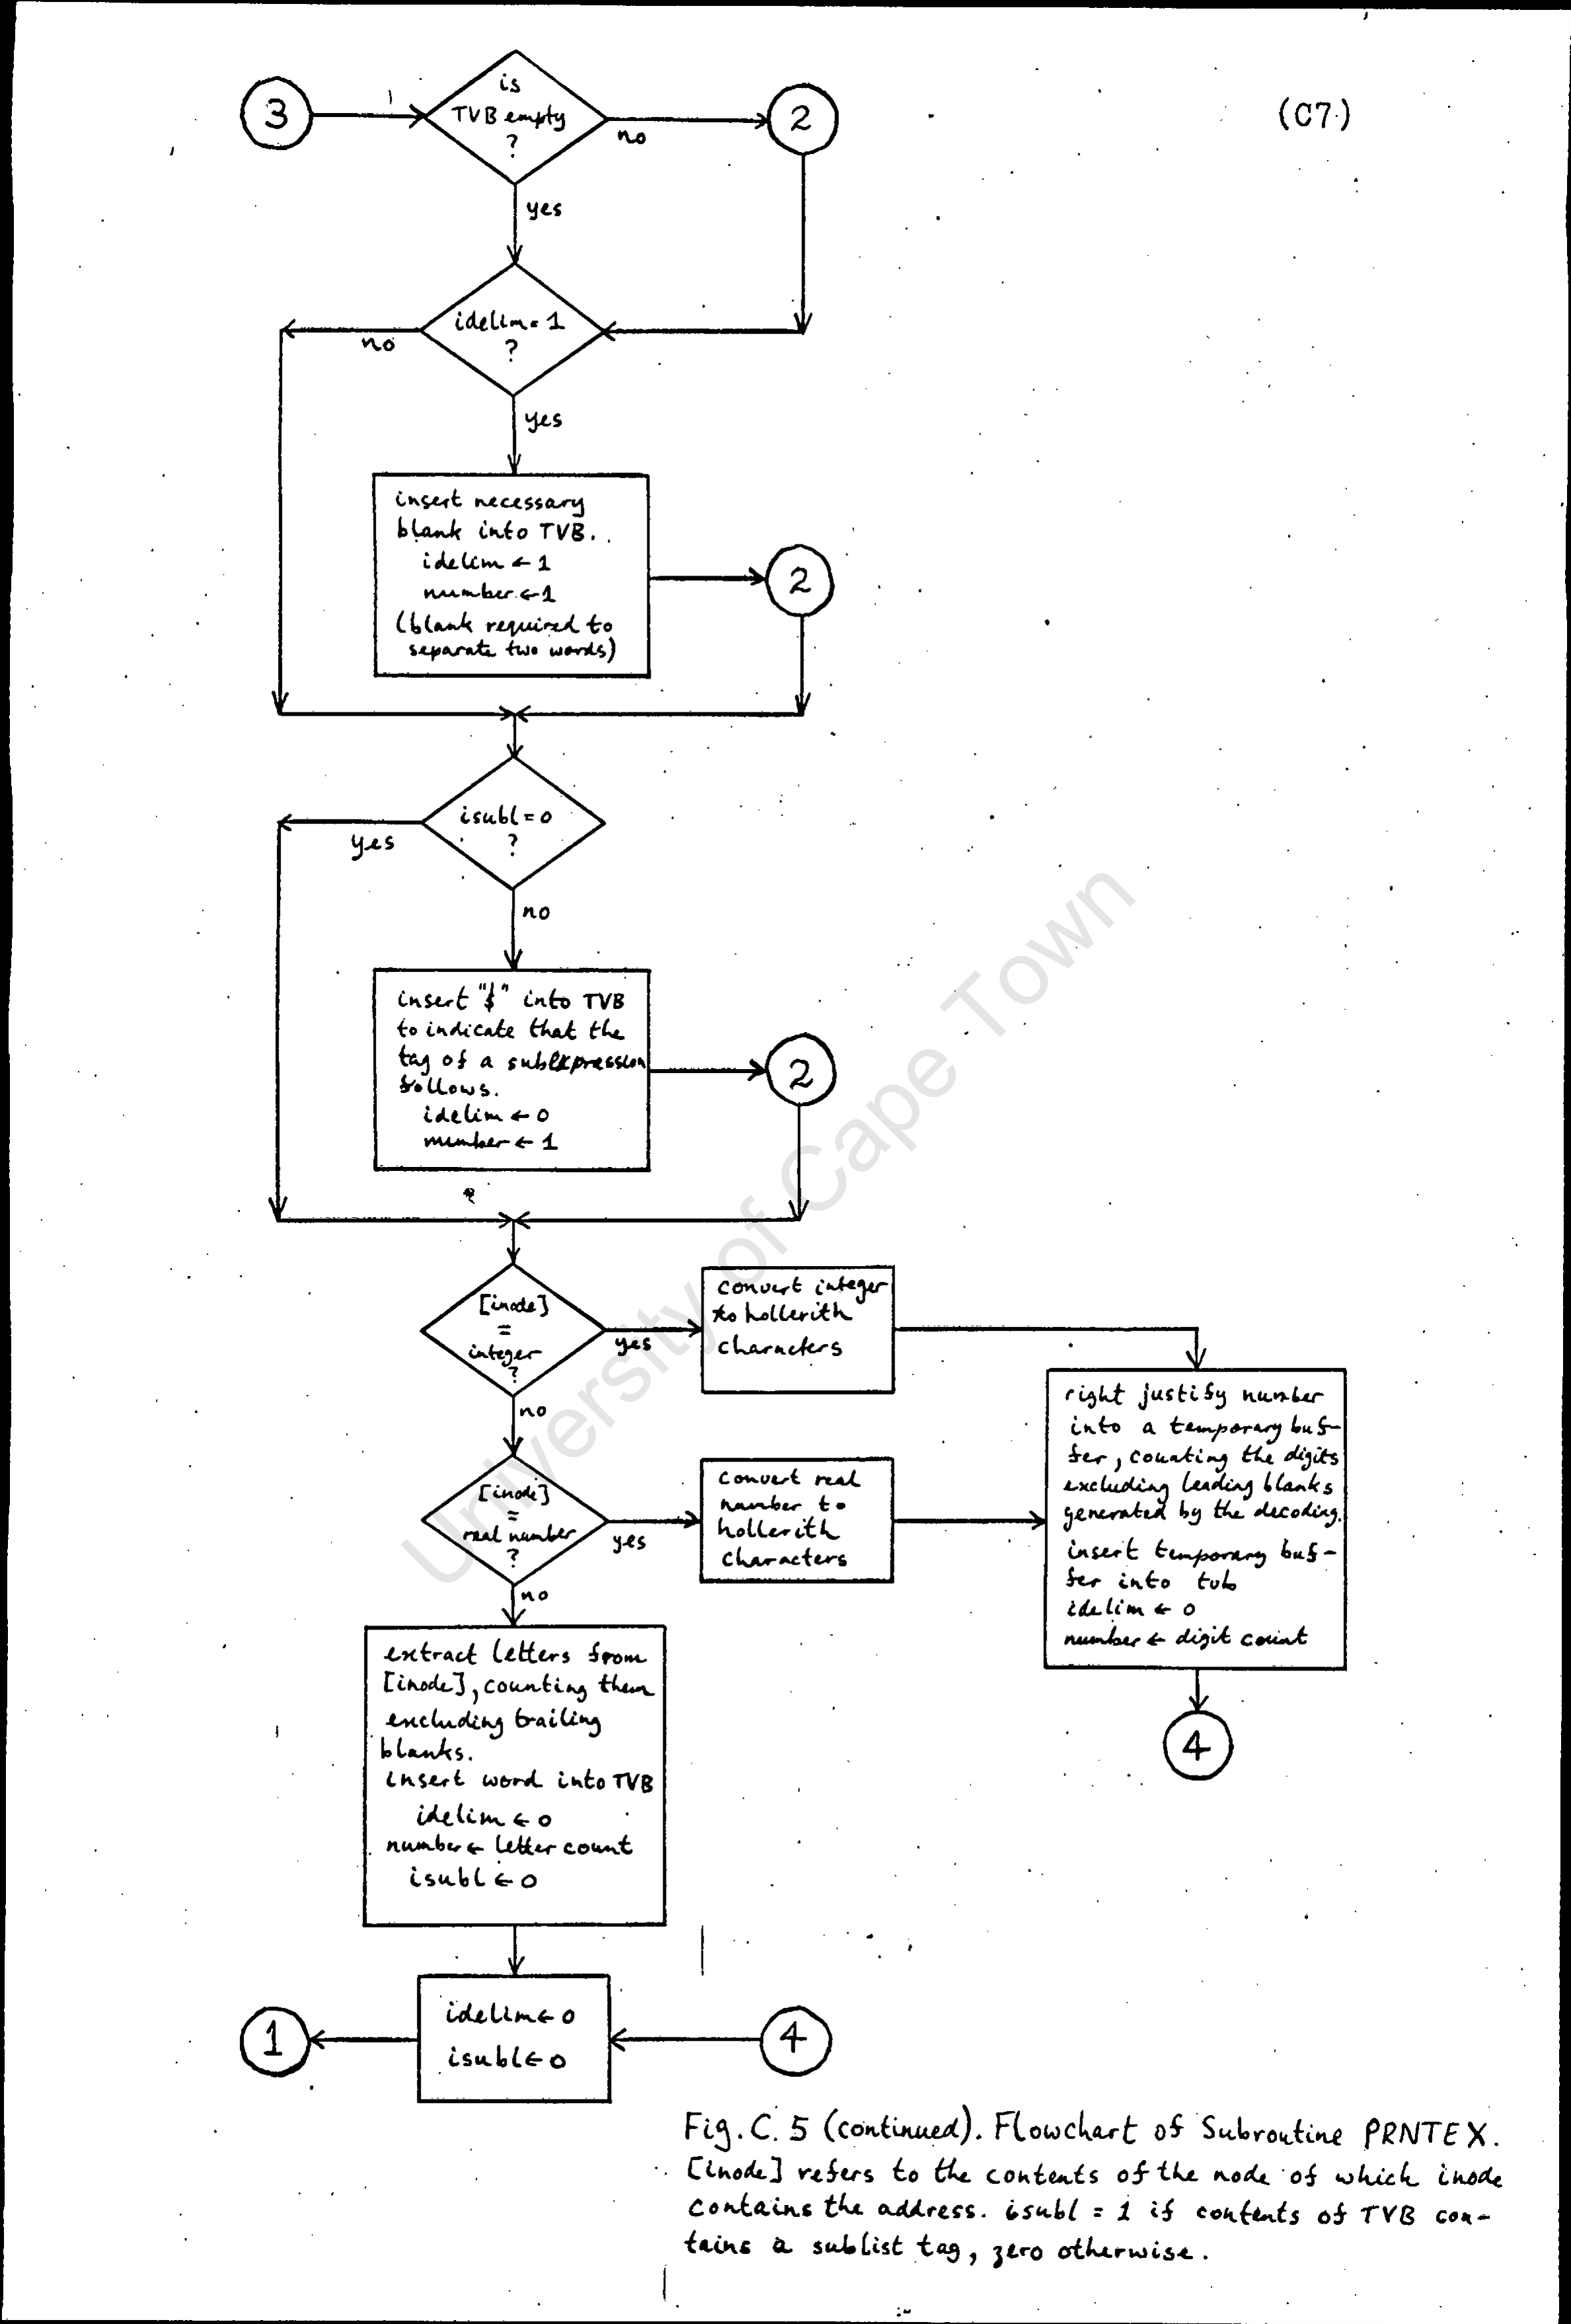 (C7)
3
is
TVB empty
?
no
2
yes
idelim = 1
?
no
yes
insert necessary
blank into TVB..
idelim ← 1
number ← 1
(blank required to
separate two words)
2
isubl = 0
?
yes
no
insert "$" into TVB
to indicate that the
tag of a subexpression
follows.
idelim ← 0
number ← 1
2
[inode]
=
integer
?
yes
no
convert integer
to hollerith
characters
[inode]
=
real number
?
yes
no
convert real
number to
hollerith
characters
right justify number
into a temporary buf-
fer, counting the digits
excluding leading blanks
generated by the decoding.
insert temporary buf-
fer into tvb
idelim ← 0
number ← digit count
4
extract letters from
[inode], counting them
excluding trailing
blanks.
insert word into TVB
idelim ← 0
number ← letter count
isubl ← 0
1
idelim ← 0
isubl ← 0
4
Fig. C. 5 (continued). Flowchart of Subroutine PRNTEX.
[inode] refers to the contents of the node of which inode
contains the address. isubl = 1 if contents of TVB con-
tains a sublist tag, zero otherwise.
University of Cape Town